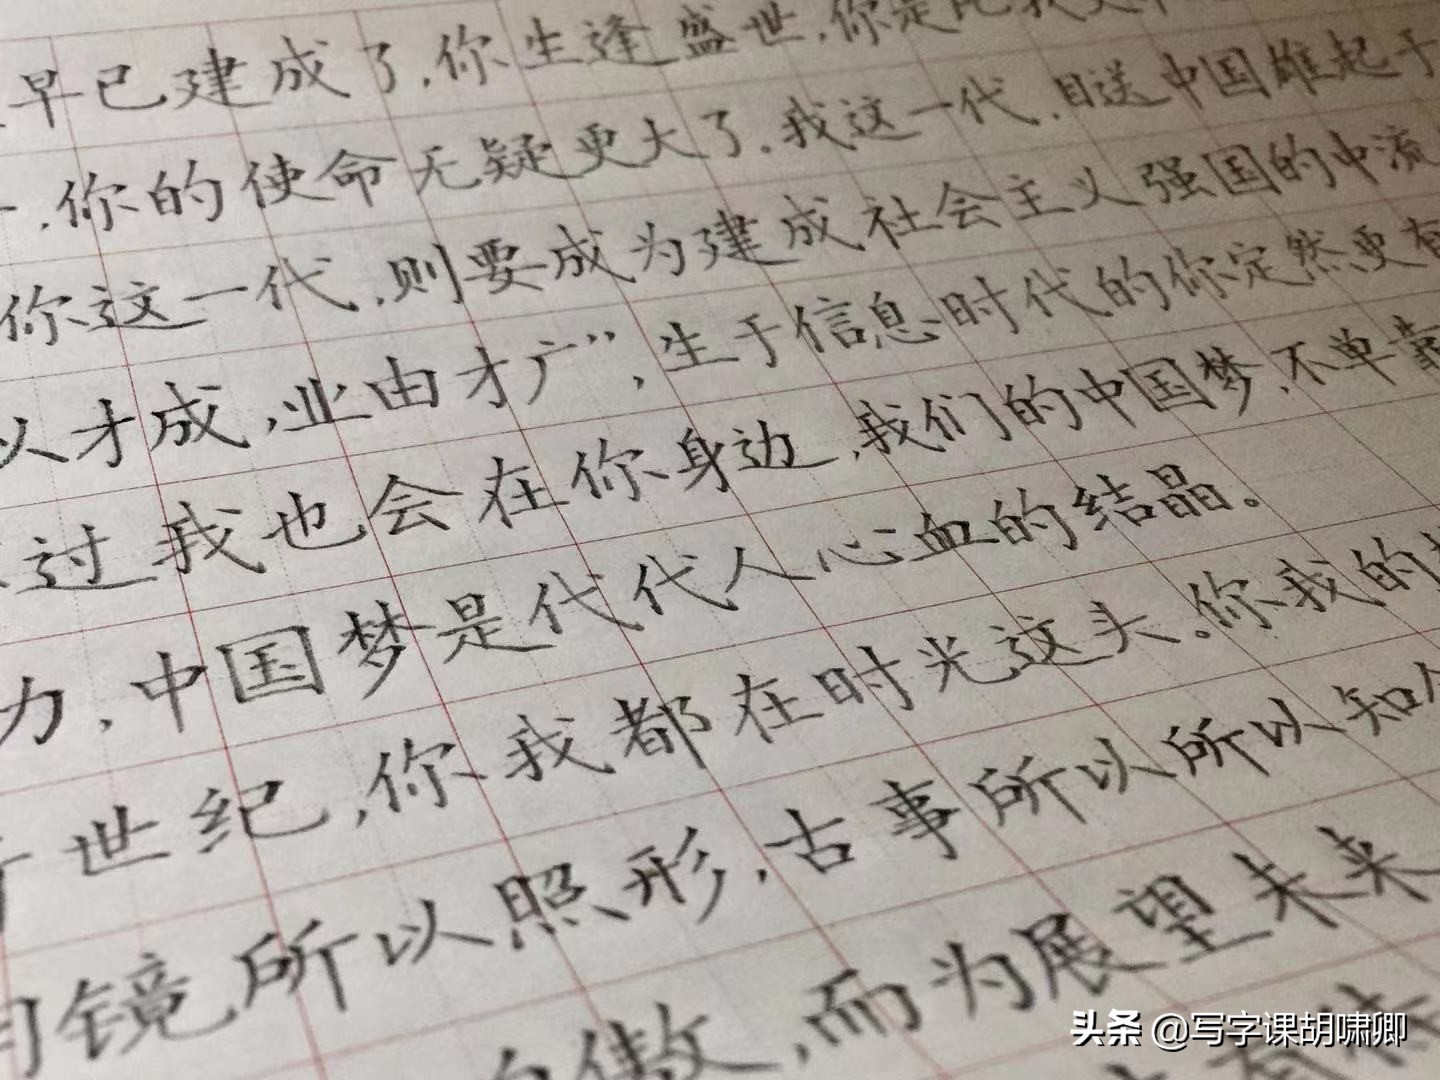 早已建成了，你生逢盛世，你是比我更
，你的使命无疑更大了。我这一代，目送中国雄起于
你这一代，则要成为建成社会主义强国的中流
以才成，业由才广”，生于信息时代的你定然更有
过我也会在你身边，我们的中国梦，不单靠
力，中国梦是代代人心血的结晶。
世纪，你我都在时光这头。你我的
明镜所以照形，古事所以所以知今
傲，而为展望未来
头条 @写字课胡啸卿